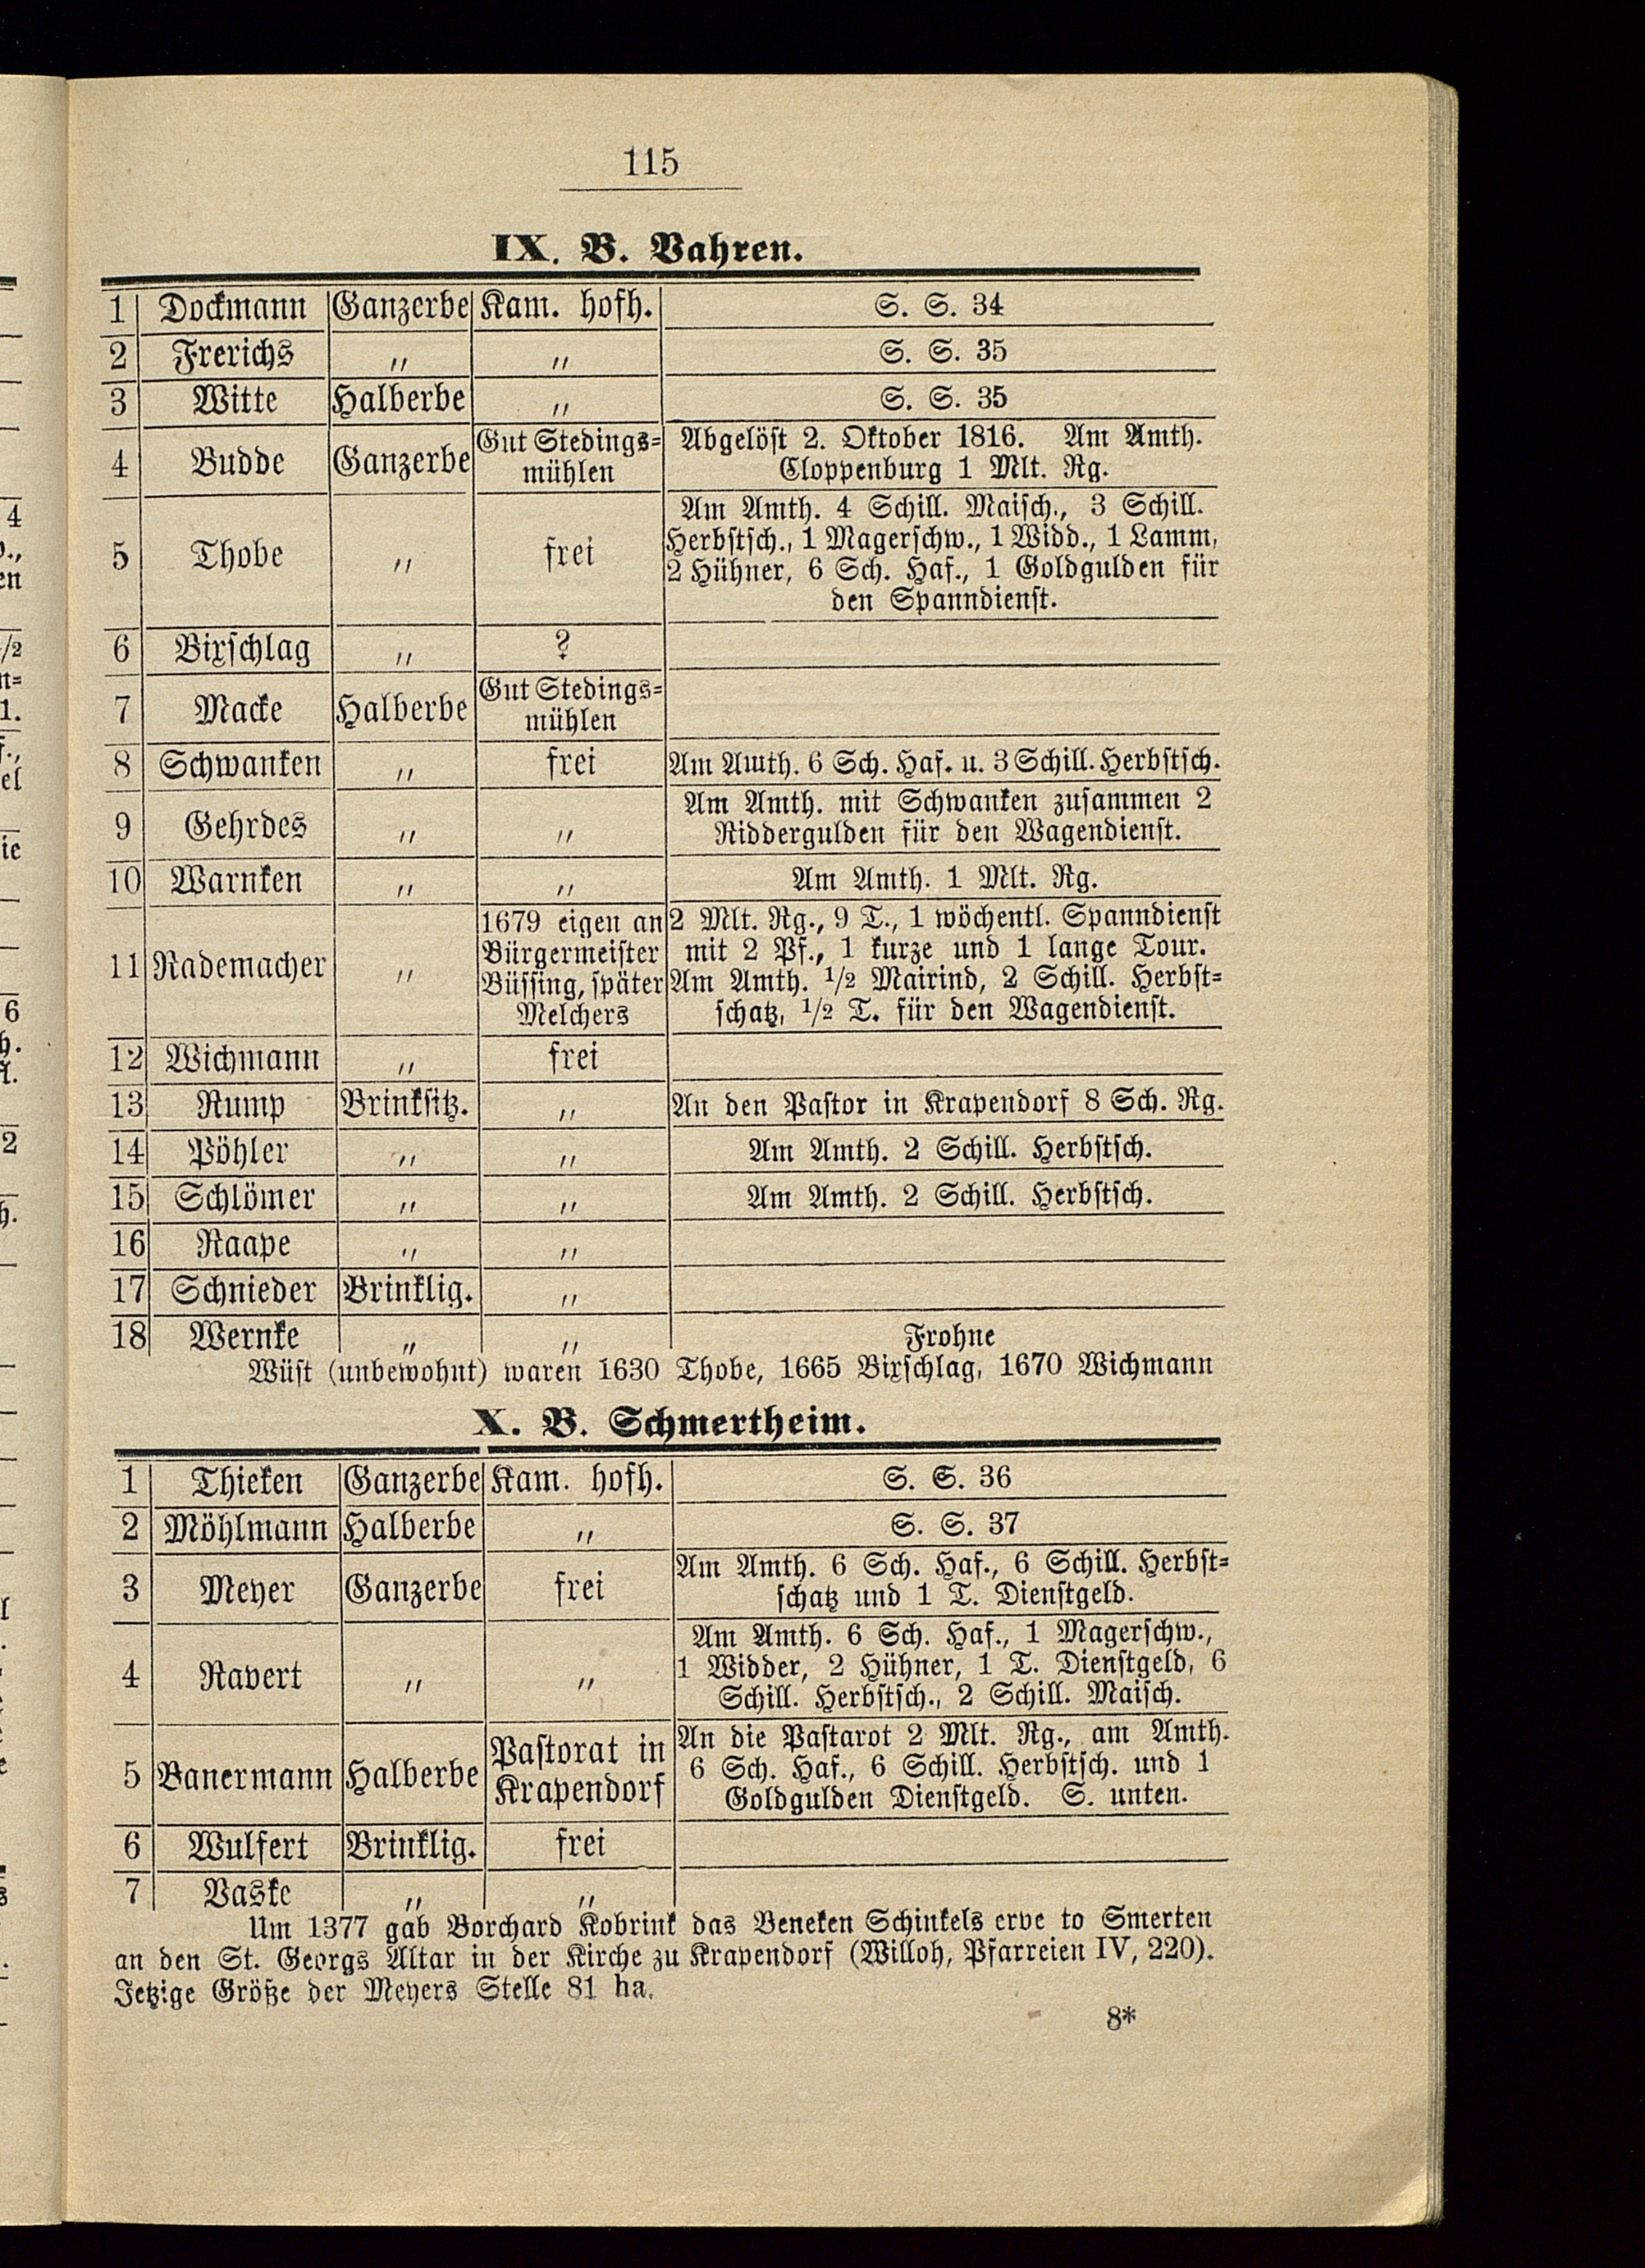 115
IX. B. Vahren.
1 Dockmann Ganzerbe Kam. hofh. S. S. 34
2 Frerichs „ „ S. S. 35
3 Witte Halberbe „ S. S. 35
4 Budde Ganzerbe Gut Stedings= mühlen Abgelöst 2. Oktober 1816. Am Amth.
Cloppenburg 1 Mlt. Rg.
5 Thobe „ frei Am Amth. 4 Schill. Maisch., 3 Schill.
Herbstsch., 1 Magerschw., 1 Widd., 1 Lamm,
2 Hühner, 6 Sch. Haf., 1 Goldgulden für
den Spanndienst.
6 Bixschlag „ ?
7 Macke Halberbe Gut Stedings=
mühlen
8 Schwanken „ frei Am Amth. 6 Sch. Haf. u. 3 Schill. Herbstsch.
9 Gehrdes „ „ Am Amth. mit Schwanken zusammen 2
Riddergulden für den Wagendienst.
10 Warnken „ „ Am Amth. 1 Mlt. Rg.
11 Rademacher „ 1679 eigen an
Bürgermeister
Büssing, später
Melchers
2 Mlt. Rg., 9 T., 1 wöchentl. Spanndienst
mit 2 Pf., 1 kurze und 1 lange Tour.
Am Amth. 1/2 Mairind, 2 Schill. Herbst=
schatz, 1/2 T. für den Wagendienst.
12 Wichmann „ frei
13 Rump Brinksitz. „ An den Pastor in Krapendorf 8 Sch. Rg.
14 Pöhler „ „ Am Amth. 2 Schill. Herbstsch.
15 Schlömer „ „ Am Amth. 2 Schill. Herbstsch.
16 Raape „ „
17 Schnieder Brinklig. „
18 Wernke „ „ Frohne
Wüst (unbewohnt) waren 1630 Thobe, 1665 Bixschlag, 1670 Wichmann
X. B. Schmertheim.
1 Thieken Ganzerbe Kam. hofh. S. S. 36
2 Möhlmann Halberbe „ S. S. 37
3 Meyer Ganzerbe frei Am Amth. 6 Sch. Haf., 6 Schill. Herbst=
schatz und 1 T. Dienstgeld.
4 Ravert „ „ Am Amth. 6 Sch. Haf., 1 Magerschw.,
1 Widder, 2 Hühner, 1 T. Dienstgeld, 6
Schill. Herbstsch., 2 Schill. Maisch.
5 Banermann Halberbe Pastorat in
Krapendorf
An die Pastarot 2 Mlt. Rg., am Amth.
6 Sch. Haf., 6 Schill. Herbstsch. und 1
Goldgulden Dienstgeld. S. unten.
6 Wulfert Brinklig. frei
7 Vaske „ „
Um 1377 gab Borchard Kobrink das Beneken Schinkels erve to Smerten
an den St. Georgs Altar in der Kirche zu Krapendorf (Willoh, Pfarreien IV, 220).
Jetzige Größe der Meyers Stelle 81 ha.
8*